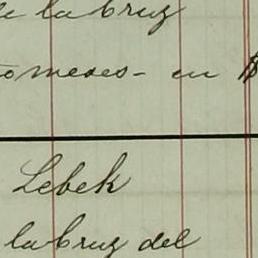 de la Cruz
meses - en $
Lebek
la Cruz del